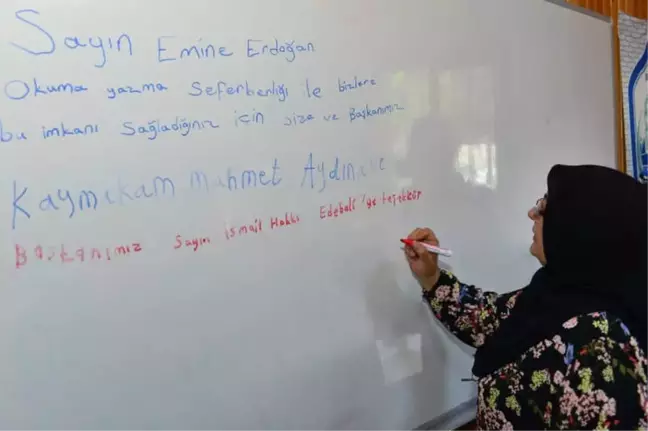 Sayın Emine Erdoğan
Okuma yazma Seferberliği le bizlere
bu imkanı Sağladığınız için size ve Başkanımız
Kaymakam Mahmet Aydın
Başkanımız Sayın ismail Hakkı Edebali'ye teşekkür